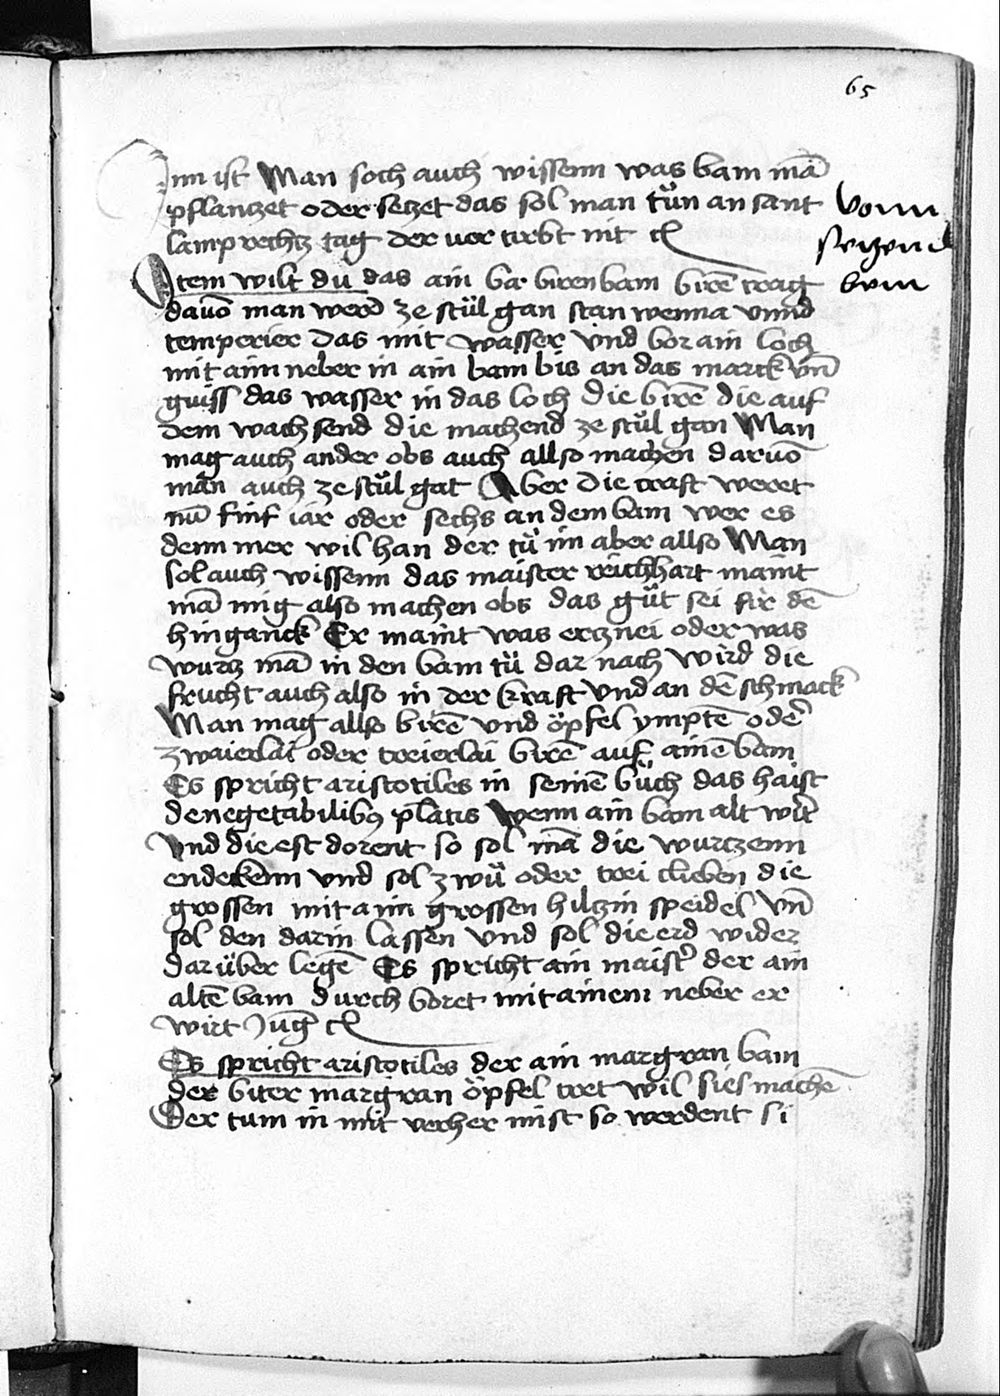 65
Inn ist Man soch auch wissenn was bam mā
pflantzet oder setzet das sol man tůn an sant
lamprechtz tag der uor tirbt nit
Vonn
setzen d
bem
Item wilt du das ain bar birenbam birē trag
dauō man werd ze stůl gan stan wenna vnnd
temperier das mit wasser vnd bor ain loch
mit aim neber in ain bam bis an das marck vn̄
guiss das wasser in das loch die birē die auf
dem wachsend die machend ze stůl gan Man
mag auch ander obs auch allso machen daruō
man auch ze stůl gat Aber die craft weret
nū finf iar oder sechs an dem bam wer es
denn mer wil han der tů im aber allso Man
sol auch wissenn das maister reichhart maint
mā mig also machen obs das gůt sei fir dē
hinganck Er maint was ertznei oder was
wurtz mā in den bam tů dar nach wird die
frucht auch also in der kraft vnd an dē schmack
Man mag allso birē vnd öpfel ympten oder
zwaierlai oder treierlai birē auf ainē bam
Es spricht aristotiles in seinē bůch das haist
de uegetabilibus plātis wenn ain bam alt wirt
vnd die est dorent so sol mā die wurtzenn
endeckenn vnd sol zwů oder trei clieben die
grossen mit aim grossen hiltzin speidel vn̄
sol den darin lassen vnd sol die erd wider
dar über legē Es spricht ain maister der ain
altē bam durch boret mit ainem neber er
wirt Jūg
Es spricht aristotiles der ain margran bam
der biter margran öpfel tret wil sies machē
Der tum in mit verher mist so werdent si